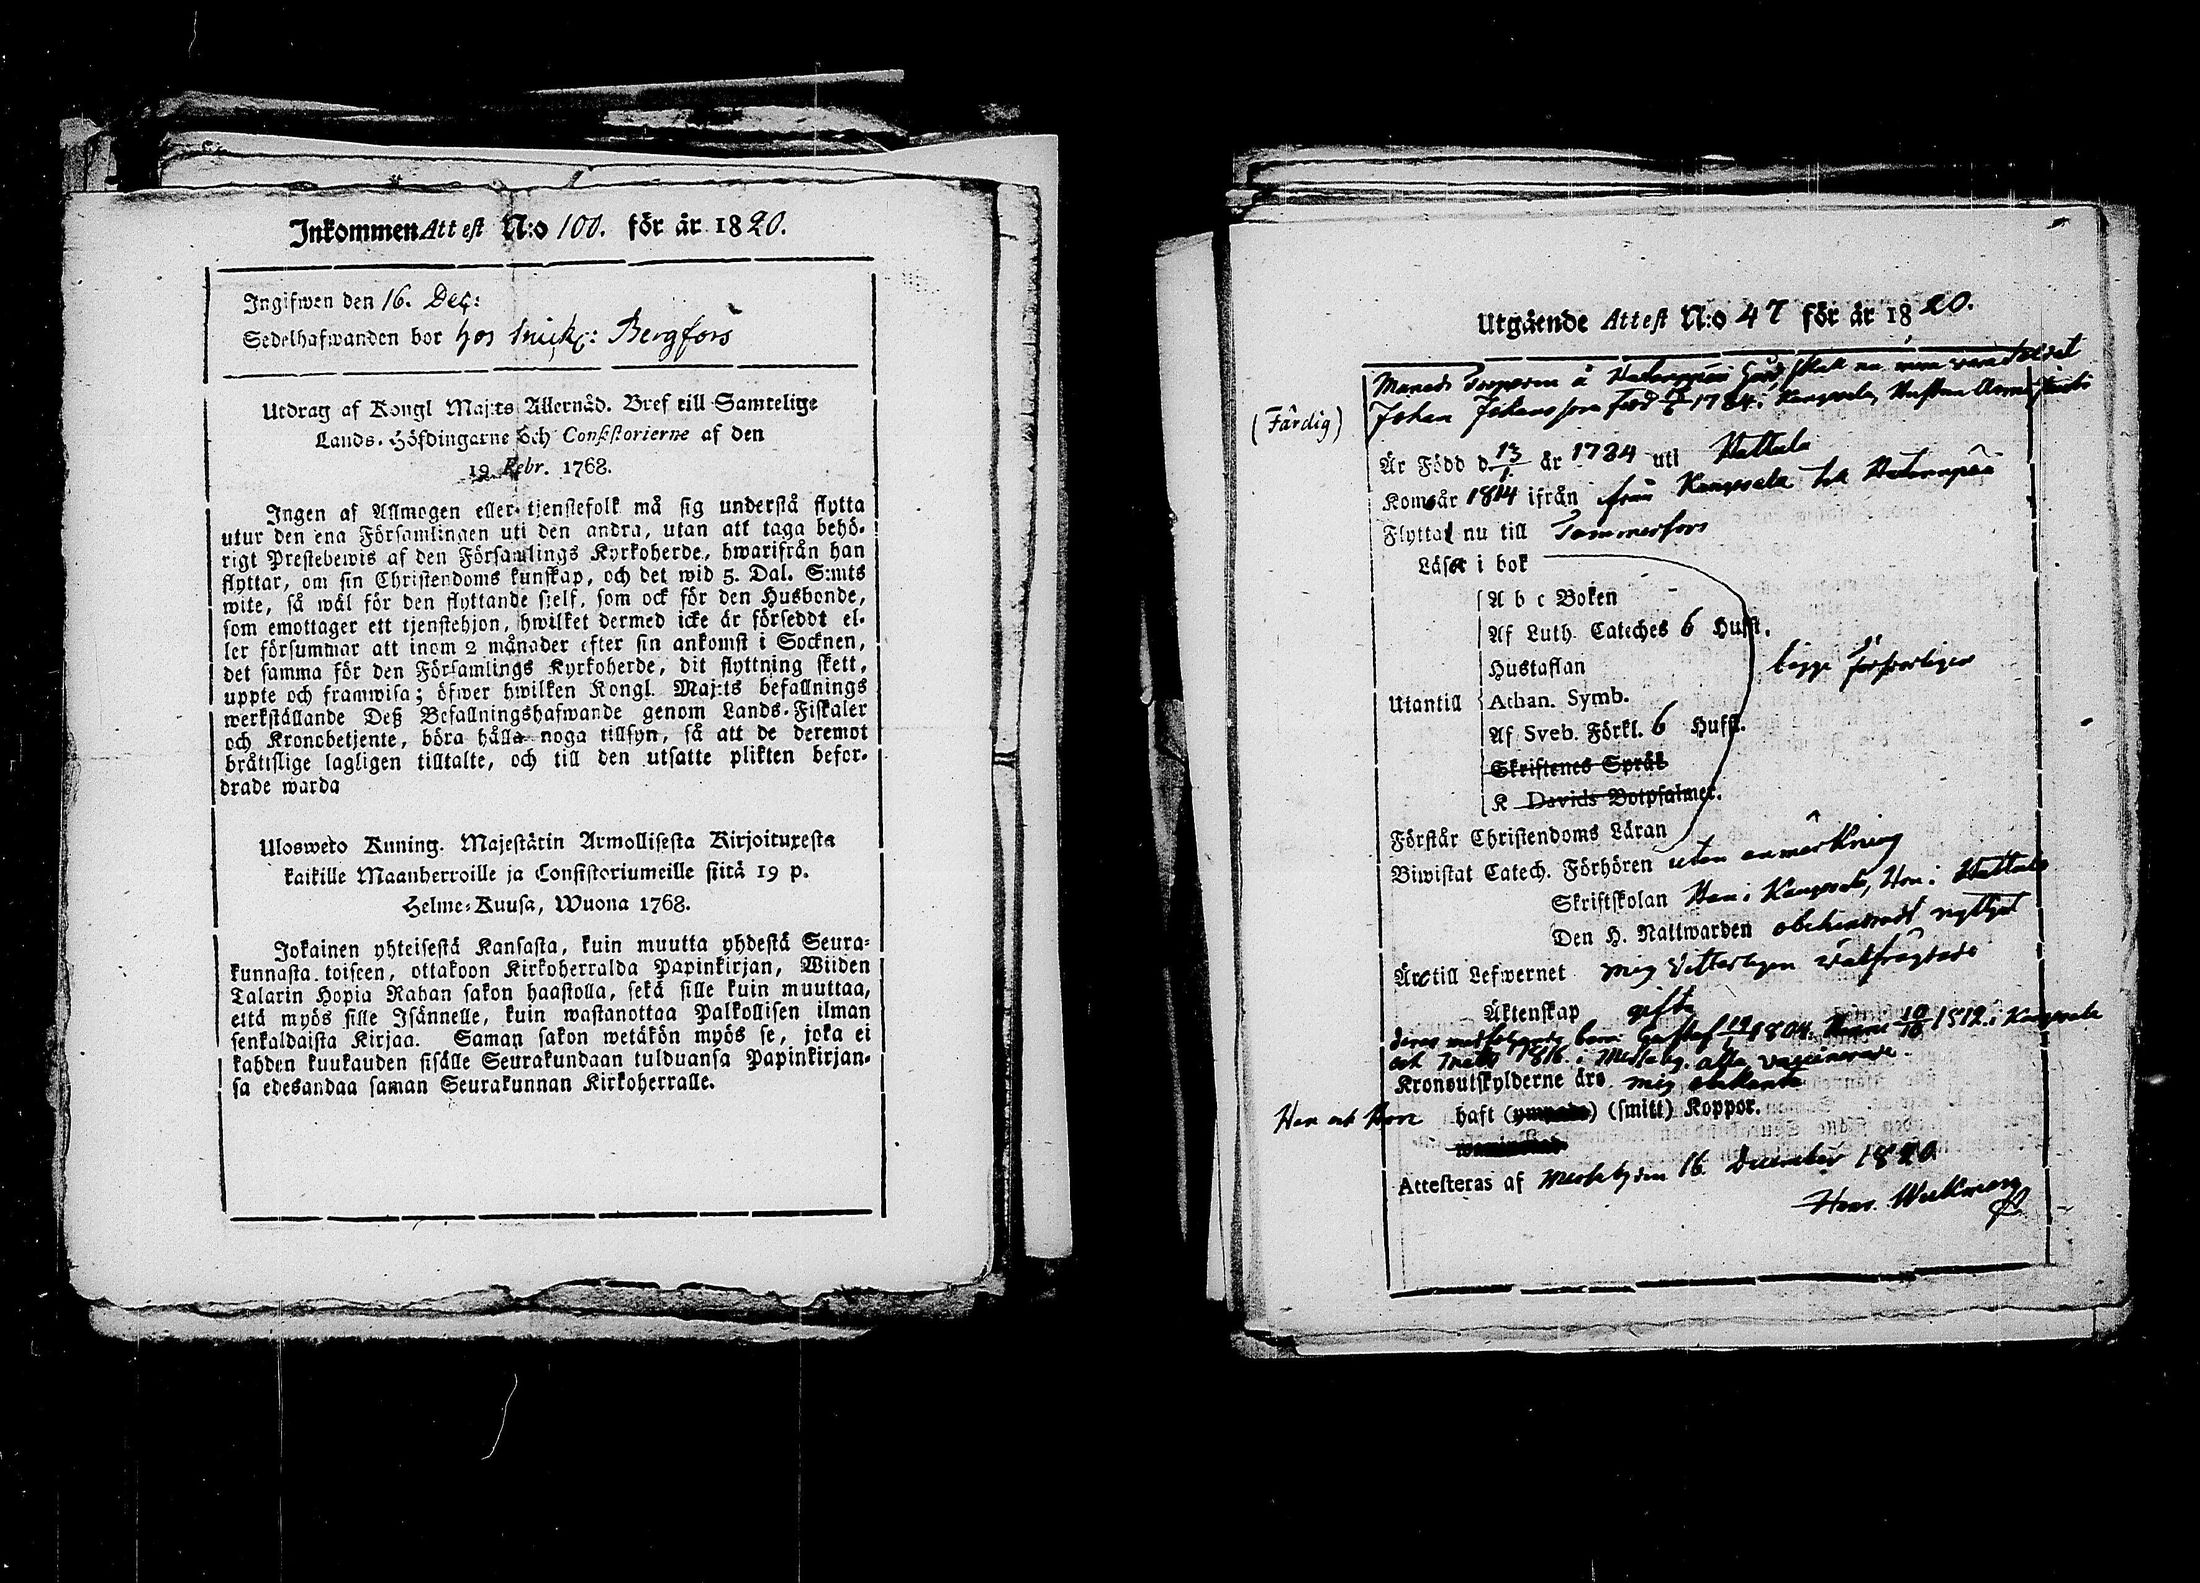 Inkommen Attest N:o 100. för år 1820.
Ingifwen den 16. Dec:
Sedelhafwanden bor hos Snick: Bergfors
Utdrag af Kongl Maj:ts Allernåd. Bref till Samtelige
Lands-Höfdingarne och Consistorierne af den
19 Febr. 1768.
Ingen af Allmogen eller tjenstefolk må sig understå flytta
utur den ena Församlingen uti den andra, utan att taga behö-
rigt Prestebewis af den Församlings Kyrkoherde, hwarifrån han
flyttar, om sin Christendoms kunskap, och det wid 5. Dal. S:mts
wite, så wäl för den flyttande sjelf, som ock för den Husbonde,
som emottager ett tjenstehjon, hwilket dermed icke är försedt el-
ler försummar att inom 2 månader efter sin ankomst i Socknen,
det samma för den Församlings Kyrkoherde, dit flyttning skett,
uppte och framwisa; öfwer hwilken Kongl. Maj:ts befallnings
werkställande Deß Befallningshafwande genom Lands-Fiskaler
och Kronobetjente, böra hålla noga tillsyn, så att de deremot
brätislige lagligen tilltalte, och till den utsatte plikten befor-
drade warda
Ulosweto Kuning. Majestätin Armollisesta Kirjoituxesta
kaikille Maanherroille ja Consistoriumeille siitä 19 p.
Helme-Kuusa, Wuona 1768.
Jokainen yhteisestä Kansasta, kuin muutta yhdestä Seura-
kunnasta toiseen, ottakoon Kirkoherralda Papinkirjan, Wiiden
Talarin Hopia Rahan sakon haastolla, sekä sille kuin muuttaa,
että myös sille Isännelle, kuin wastanottaa Palkollisen ilman
senkaldaista Kirjaa. Saman sakon wetäkön myös se, joka ei
kahden kuukauden sisälle Seurakundaan tulduansa Papinkirjan-
sa edesandaa saman Seurakunnan Kirkoherralle.
Utgående Attest N:o 47 för år 1820.
Johan Johansson född 1784 i Kangasala, Hustrun Anna
(Färdig)
Är Född d 13/1 år 1784 uti Hattula
Kom år 1814 ifrån från Kangasala till Hatanpää
Flyttat nu till Tammerfors
Läser i bok
A b c Boken
Af Luth. Cateches 6 Hufst.
Hustaflan
begge försvarligen
Utantill Athan. Symb.
Af Sveb. Förkl. 6 Hufst.
Skriftenes Språk
K Davids Botpsalmer.
Förstår Christendoms Läran
Biwistat Catech. Förhören utan anmärkning
Skriftskolan Han i Kangasala, Hon i Hattula
Den H. Nattwarden obehindradt nyttjat
Äro till Lefwernet mig vetterligen wälfrägdade
Äktenskap gifta
deras medföljande barn Gustaf 1804. 1812 i Kangasala
och 1816 i Messuby. alla vaccinerade.
Kronoutskylderne äro mig obekante
Han och Hon haft (smitt) Koppor.
Attesteras af Messuby den 16 December 1820
Henr. Weckman